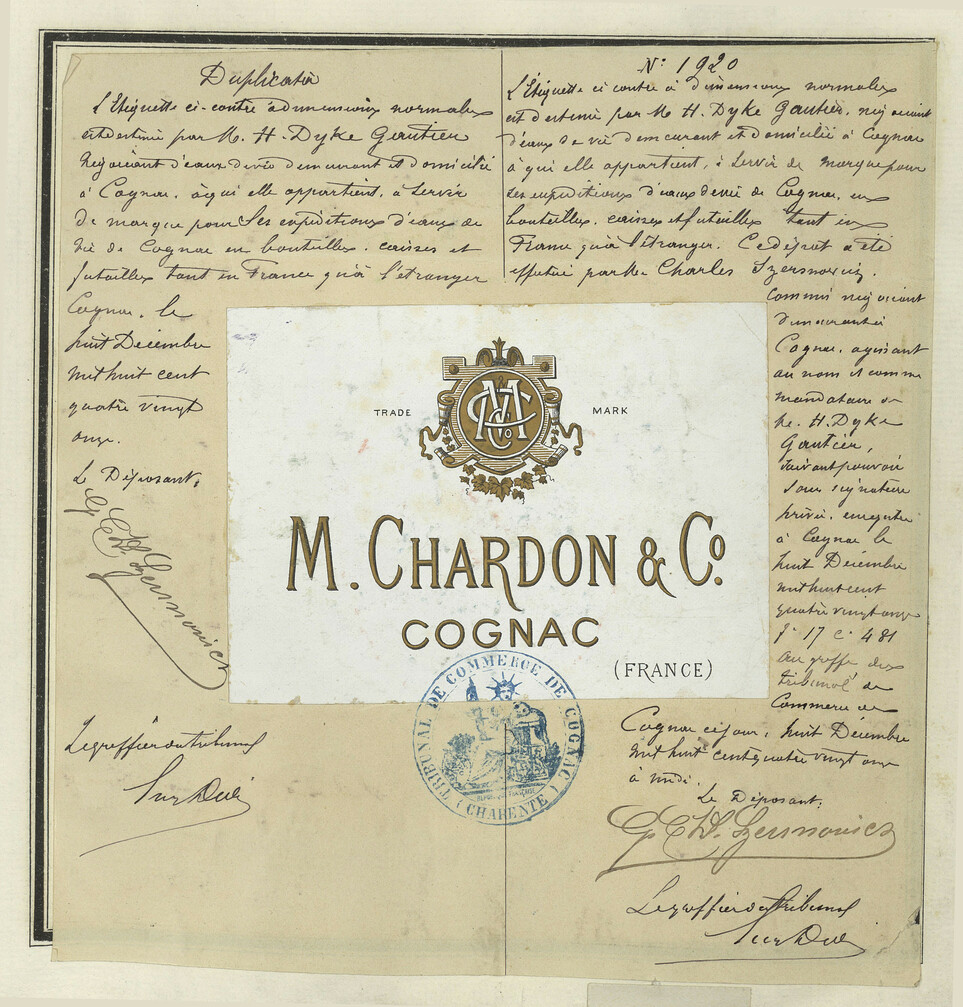 Duplicata
L'Etiquette ci-contre à dimensions normales
est destinée par M. H. Dyke Gautier
Négociant d'eaux de vie demeurant et domicilié
à Cognac, à qui elle appartient, à servir
de marque pour ses expéditions d'eaux de
vie de Cognac en bouteilles, caisses et
futailles tant en France qu'à l'étranger
Cognac, le
huit Décembre
mil huit cent
quatre vingt
onze.
Le Déposant,
Le greffier du tribunal
N° 1920
L'Etiquette ci contre à dimensions normales
est destinée par M. H. Dyke Gautier, négociant
d'eaux de vie demeurant et domicilié à Cognac
à qui elle appartient, à servir de marque pour
ses expéditions d'eaux de vie de Cognac, en
bouteilles, caisses et futailles tant en
France qu'à l'étranger. Ce dépôt a été
effectué par Mr Charles Szersnovicz,
commis négociant
demeurant à
Cognac, agissant
au nom et comme
mandataire de
M. H. Dyke
Gautier,
suivant pouvoir
sous signature
privée, enregistré
à Cognac le
huit Décembre
mil huit cent
quatre vingt onze
f° 17 c° 481
au greffe du
tribunal de
Commerce de
Cognac ce jour, huit Décembre
mil huit cent quatre vingt onze
à midi.
Le Déposant,
Le greffier du tribunal
TRADE MARK
MC & Co
M. CHARDON & Co.
COGNAC
(FRANCE)
TRIBUNAL DE COMMERCE DE COGNAC
(CHARENTE)